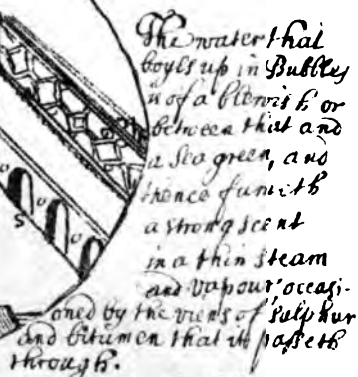 The water that
boyls up in Bubbles
is of a blewish or
between that and
a Sea green, and
thence fumeth
a strong scent
in a thin steam
and vapour occasi-
oned by the viens of sulphur
and bitumen that it passeth
through.
o
S
o
o